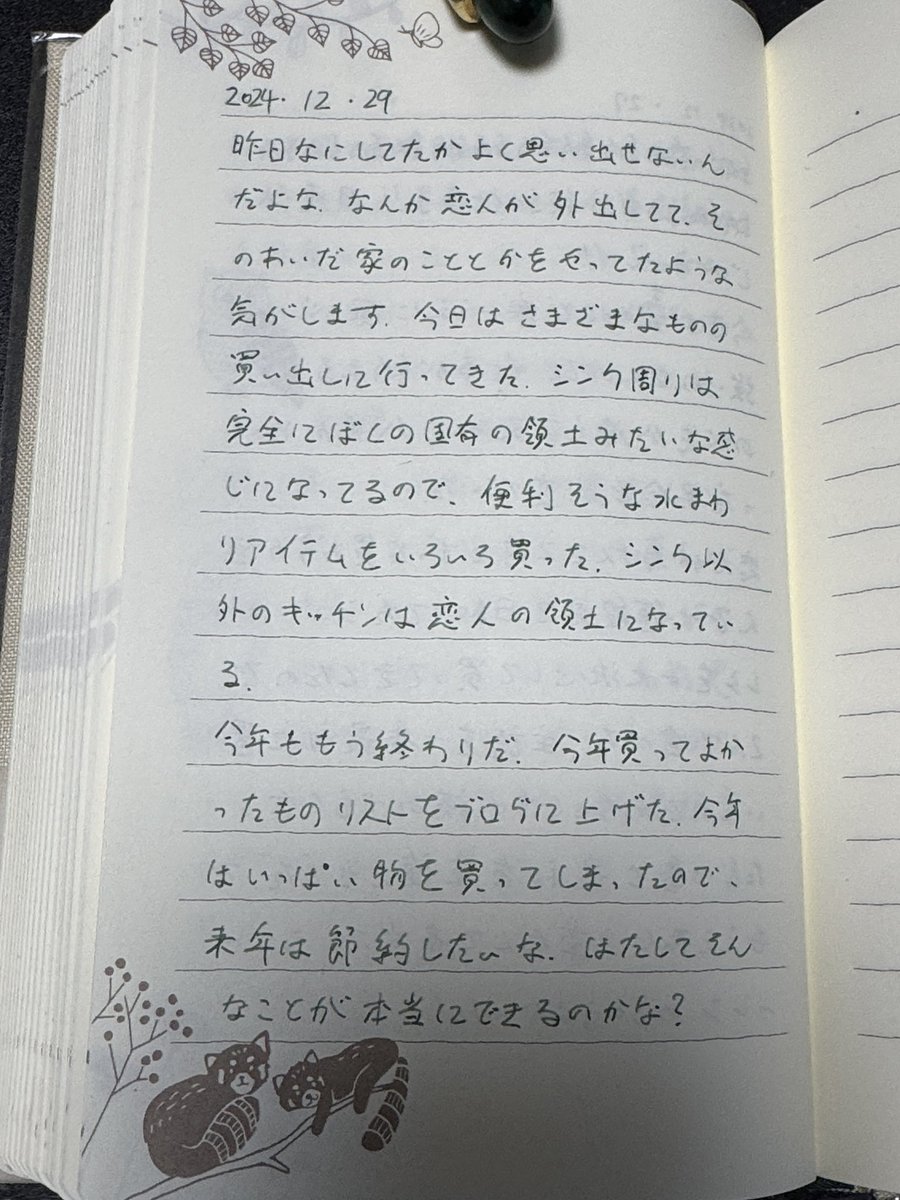 2024. 12 . 29
昨日なにしてたかよく思い出せないん
だよな. なんか恋人が外出してて、そ
のあいだ家のこととかをやってたような
気がします. 今日はさまざまなものの
買い出しに行ってきた. シンク周りは
完全にぼくの固有の領土みたいな感
じになってるので、便利そうな水まわ
りアイテムをいろいろ買った. シンク以
外のキッチンは恋人の領土になってい
る.
今年ももう終わりだ. 今年買ってよか
ったものリストをブログに上げた. 今年
はいっぱい物を買ってしまったので、
来年は節約したいな. はたしてそん
なことが本当にできるのかな?